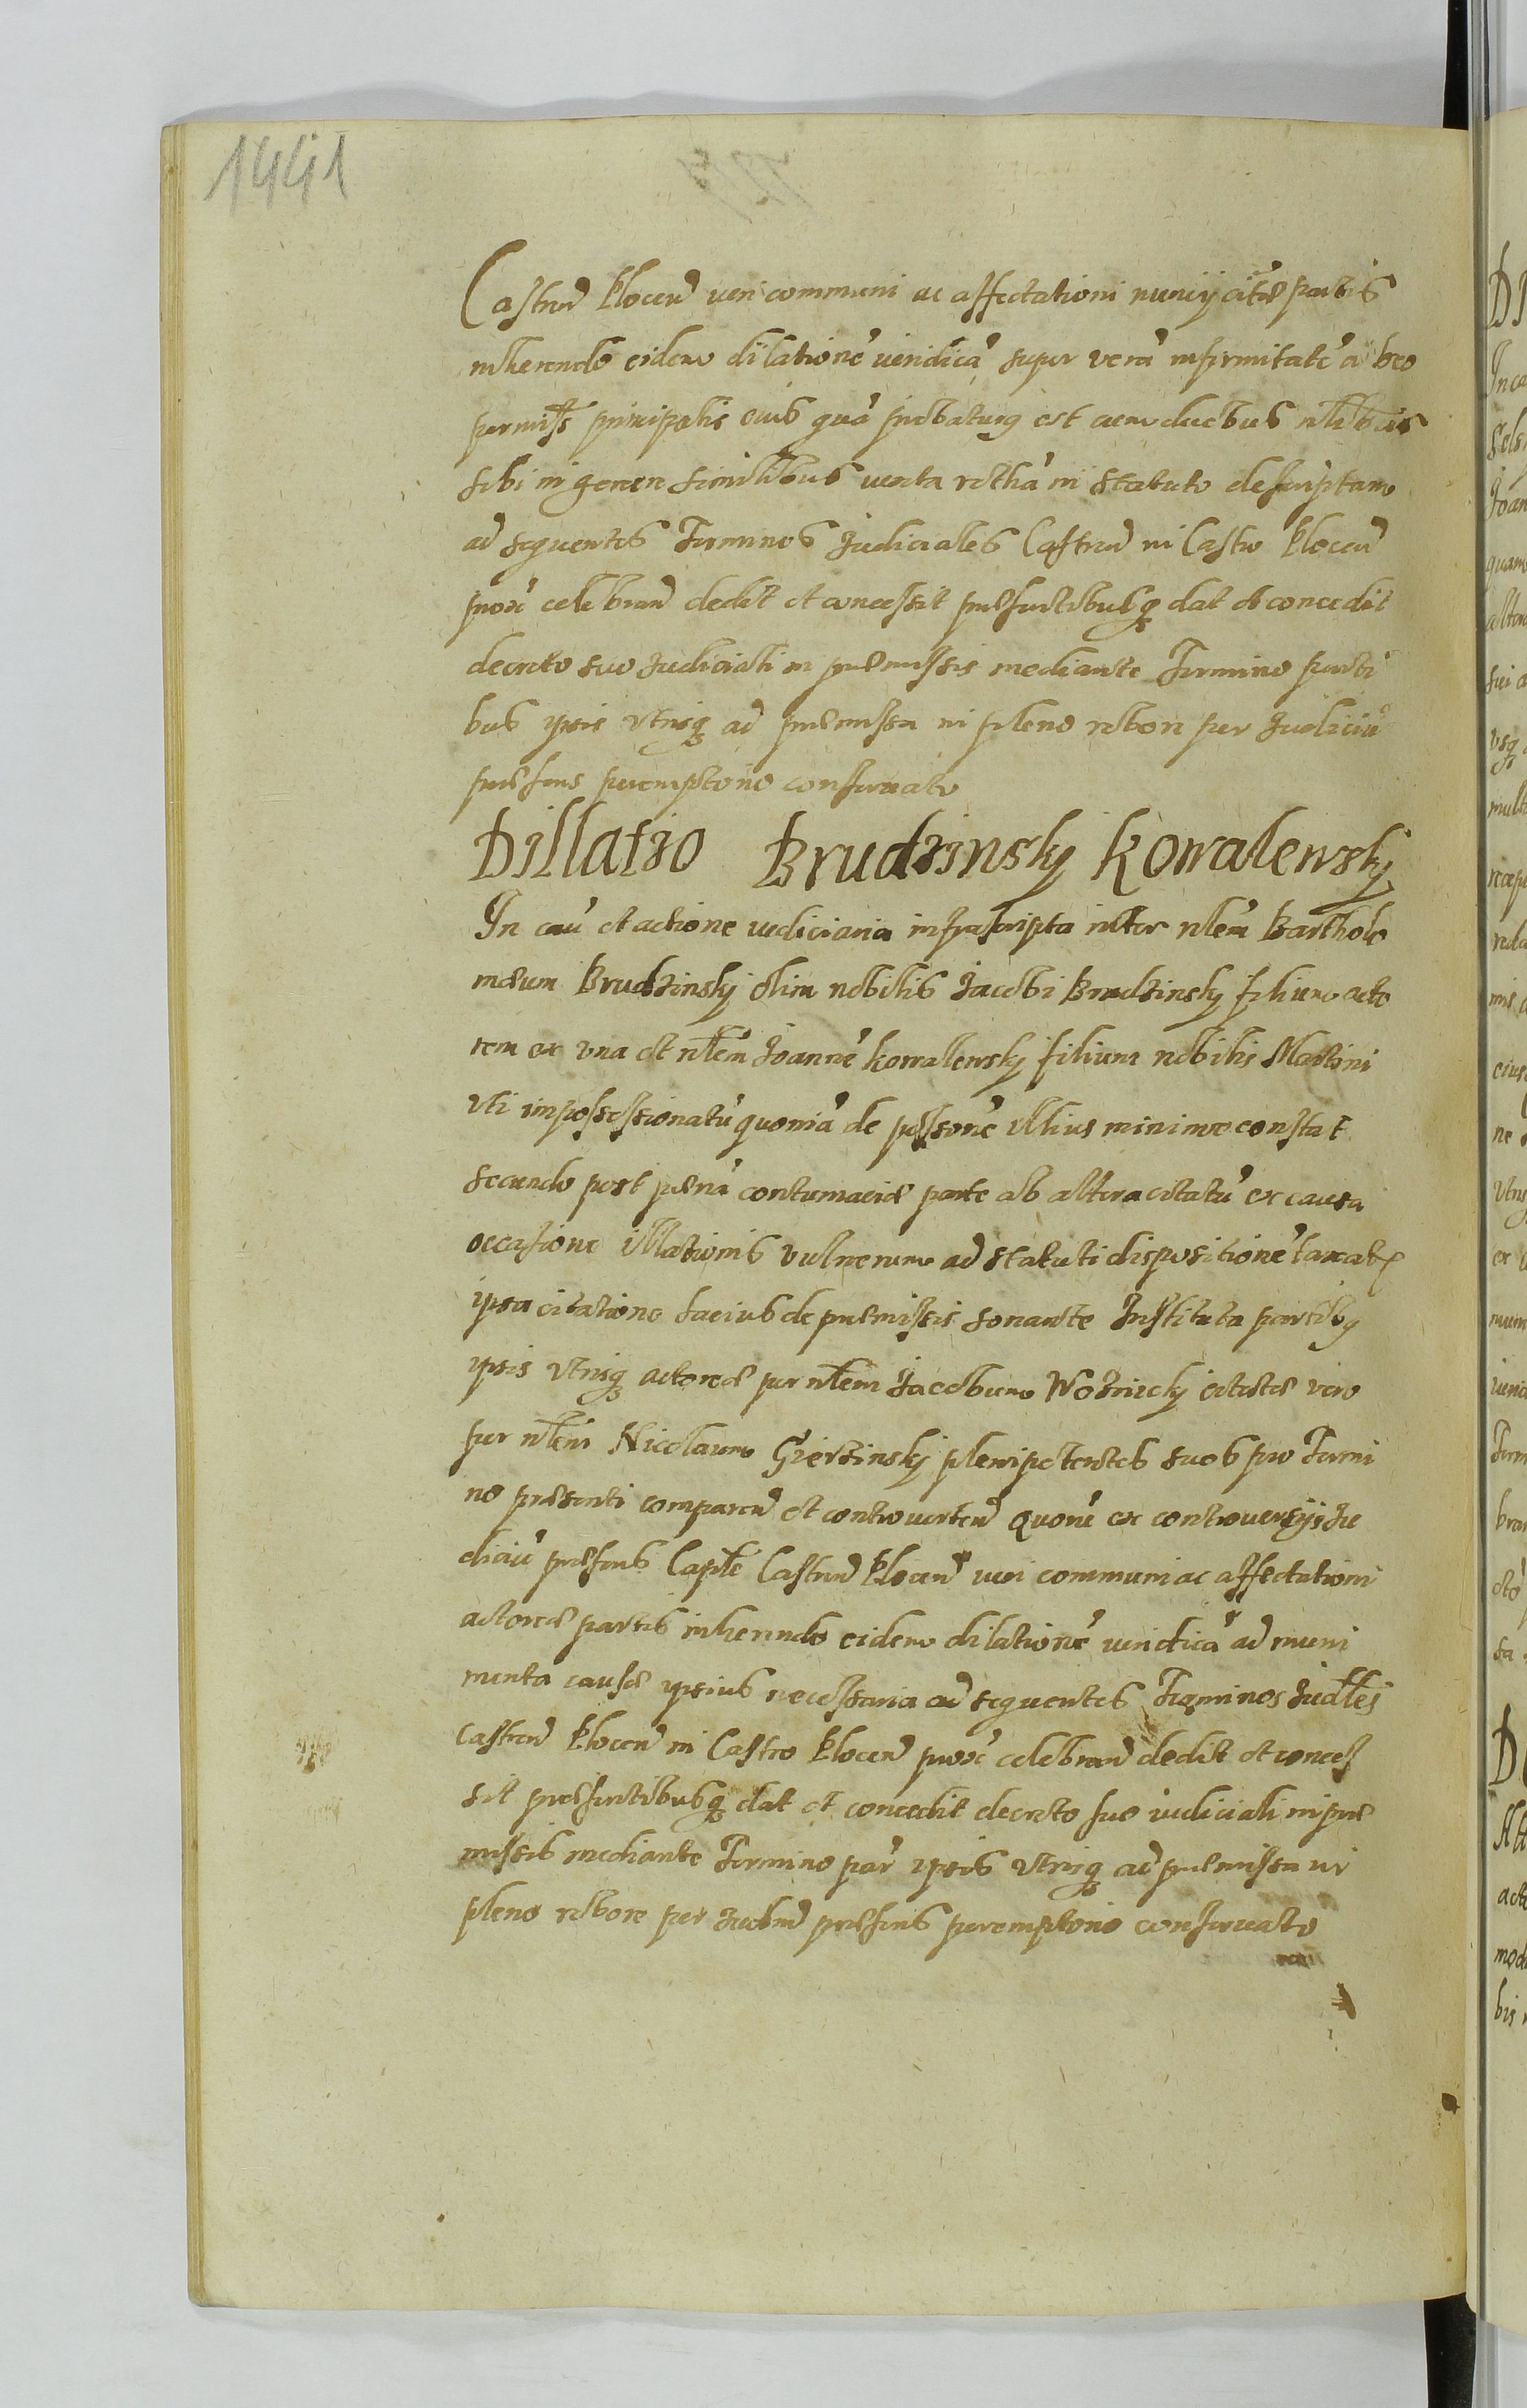 1441
Castren Plocen iuri communi ac affectationi nuncÿ citatæ partis
inherendo eidem dilationē iuridicā super verā infirmitatē a Deo
permiss principalis eius quā probaturus est cum duobus nlibus
sibi in genere similibus iuxta rothā in statuto descriptam
ad sequentes Terminos Judiciales Castren in Castro Plocen
prox celebran dedit et concessit præsentibusq dat et concedit
decreto suo Judiciali in præmissis mediante Termino parti
bus ipsis vtrisq ad præmissa in pleno robore per Judiciū
præsens peremptorie conservato
Dillatio Brudzinskÿ Kowalewskÿ
In cau et actione iudiciaria infrascripta inter nlem Bartholo
mæum Brudzinskÿ olim nobilis Jacobi Brudzinskÿ filium acto
rem ex vna et nlem Joannē Kowalewskÿ filium nobilis Martini
vti impossessionatū quoniā de possone illius minime constat
secundo post pænā contumaciæ parte ab altera citatū ex causa
occasione illationis vulnerum ad statuti dispositionē taxat
ipsa citatione lacius de præmissis sonante Instituta partibus
ipsis vtrisq actorea per nlem Jacobum Woznickÿ citata vero
per nlem Nicolaum Gierzinskÿ plenipotentes suos pro Termi
no præsenti comparen et controverten Quorū ex controversijs Ju
diciū præsens Caple Castren Plocen iuri communi ac affectationi
actoreæ partis inherendo eidem dilationē iuridicā ad muni
menta causæ ipsius necessaria ad sequentes Terminos Judles
Castren Plocen in Castro Plocen prox celebran dedit et conces
sit præsentibusq dat et concedit decreto suo iudiciali in præ
missis mediante Termino par ipsis vtrisq ad præmissa in
pleno robore per Judm præsens peremptorie conservato